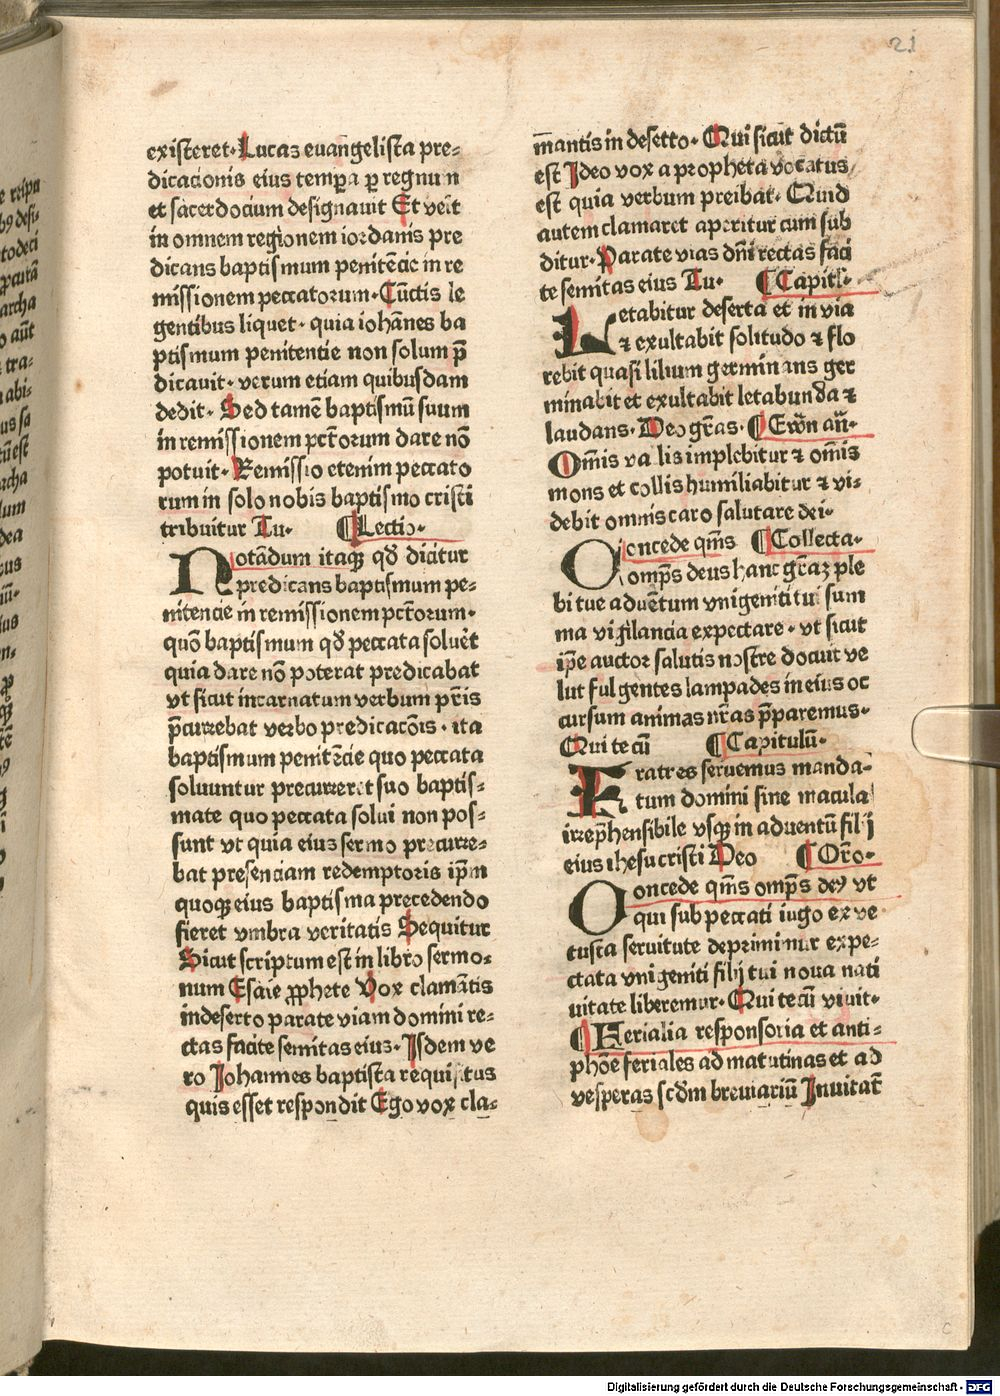 21
existeret. Lucas euangelista pre-
dicacionis eius tempora per regnum
et sacerdocium designauit Et venit
in omnem regionem iordanis pre
dicans baptismum penitẽcie in re
missionem peccatorum. Cũctis le
gentibus liquet. quia iohãnes ba
ptismum penitentie non solum p̃
dicauit. verum etiam quibusdam
dedit. Sed tamẽ baptismũ suum
in remissionem pctorum dare nõ
potuit. Remissio etenim peccato
rum in solo nobis baptismo cristi
tribuitur Tu. ¶Lectio.
Notãdum itaqꝫ qđ dicitur
predicans baptismum pe-
nitencie in remissionem pctorum.
quoã baptismum qđ peccata soluẽt
quia dare nõ poterat predicabat
vt sicut incarnatum verbum pr̃is
p̃currebat verbo predicacõis. ita
baptismum penitẽcie quo peccata
soluuntur precurreret suo baptis-
mate quo peccata solui non pos-
sunt vt quia eius sermo precurre-
bat presenciam redemptoris ipm̃
quoqꝫ eius baptisma precedendo
fieret vmbra veritatis Sequitur
Sicut scriptum est in libro sermo-
num Esaie ꝓphete Vox clamãtis
in deserto parate viam domini re-
ctas facite semitas eius. Isdem ve
ro Iohannes baptista requisitus
quis esset respondit Ego vox cla-
mantis in desetto. Qui sicut dictũ
est Ideo vox a propheta vocatus
est quia verbum preibat. Quid
autem clamaret aperitur cum sub
ditur. Parate vias dñi rectas faci
te semitas eius Tu. ¶Capitl.
Letabitur deserta et in via
⁊ exultabit solitudo ⁊ flo
rebit quasi lilium germinans ger
minabit et exultabit letabunda ⁊
laudans. Deo gr̃as. ¶Ewñ añ.
Om̃is vallis implebitur ⁊ om̃is
mons et collis humiliabitur ⁊ vi-
debit omnis caro salutare dei.
Concede qm̃s ¶Collecta.
omp̃s deus hanc gr̃aꝫ ple
bi tue aduẽtum vnigeniti tui sum
ma vigilancia expectare. vt sicut
ip̃e auctor salutis nostre docuit ve
lut fulgentes lampades in eius oc
cursum animas nr̃as p̃paremus.
Qui tecũ ¶Capitulũ.
Fratres seruemus manda-
tum domini sine macula
irrep̃hensibile vsqꝫ in aduentũ filij
eius ihesu cristi Deo ¶Oro.
Concede qm̃s omp̃s deꝰ vt
qui sub peccati iugo ex ve
tusta seruitute deprimimur expe-
ctata vnigeniti filij tui noua nati
uitate liberemur. Qui tecũ viuit.
¶Ferialia responsoria et anti-
phõe feriales ad matutinas et ad
vesperas scd̃m breuiariũ Inuitat̃
c
Digitalisierung gefördert durch die Deutsche Forschungsgemeinschaft - DFG